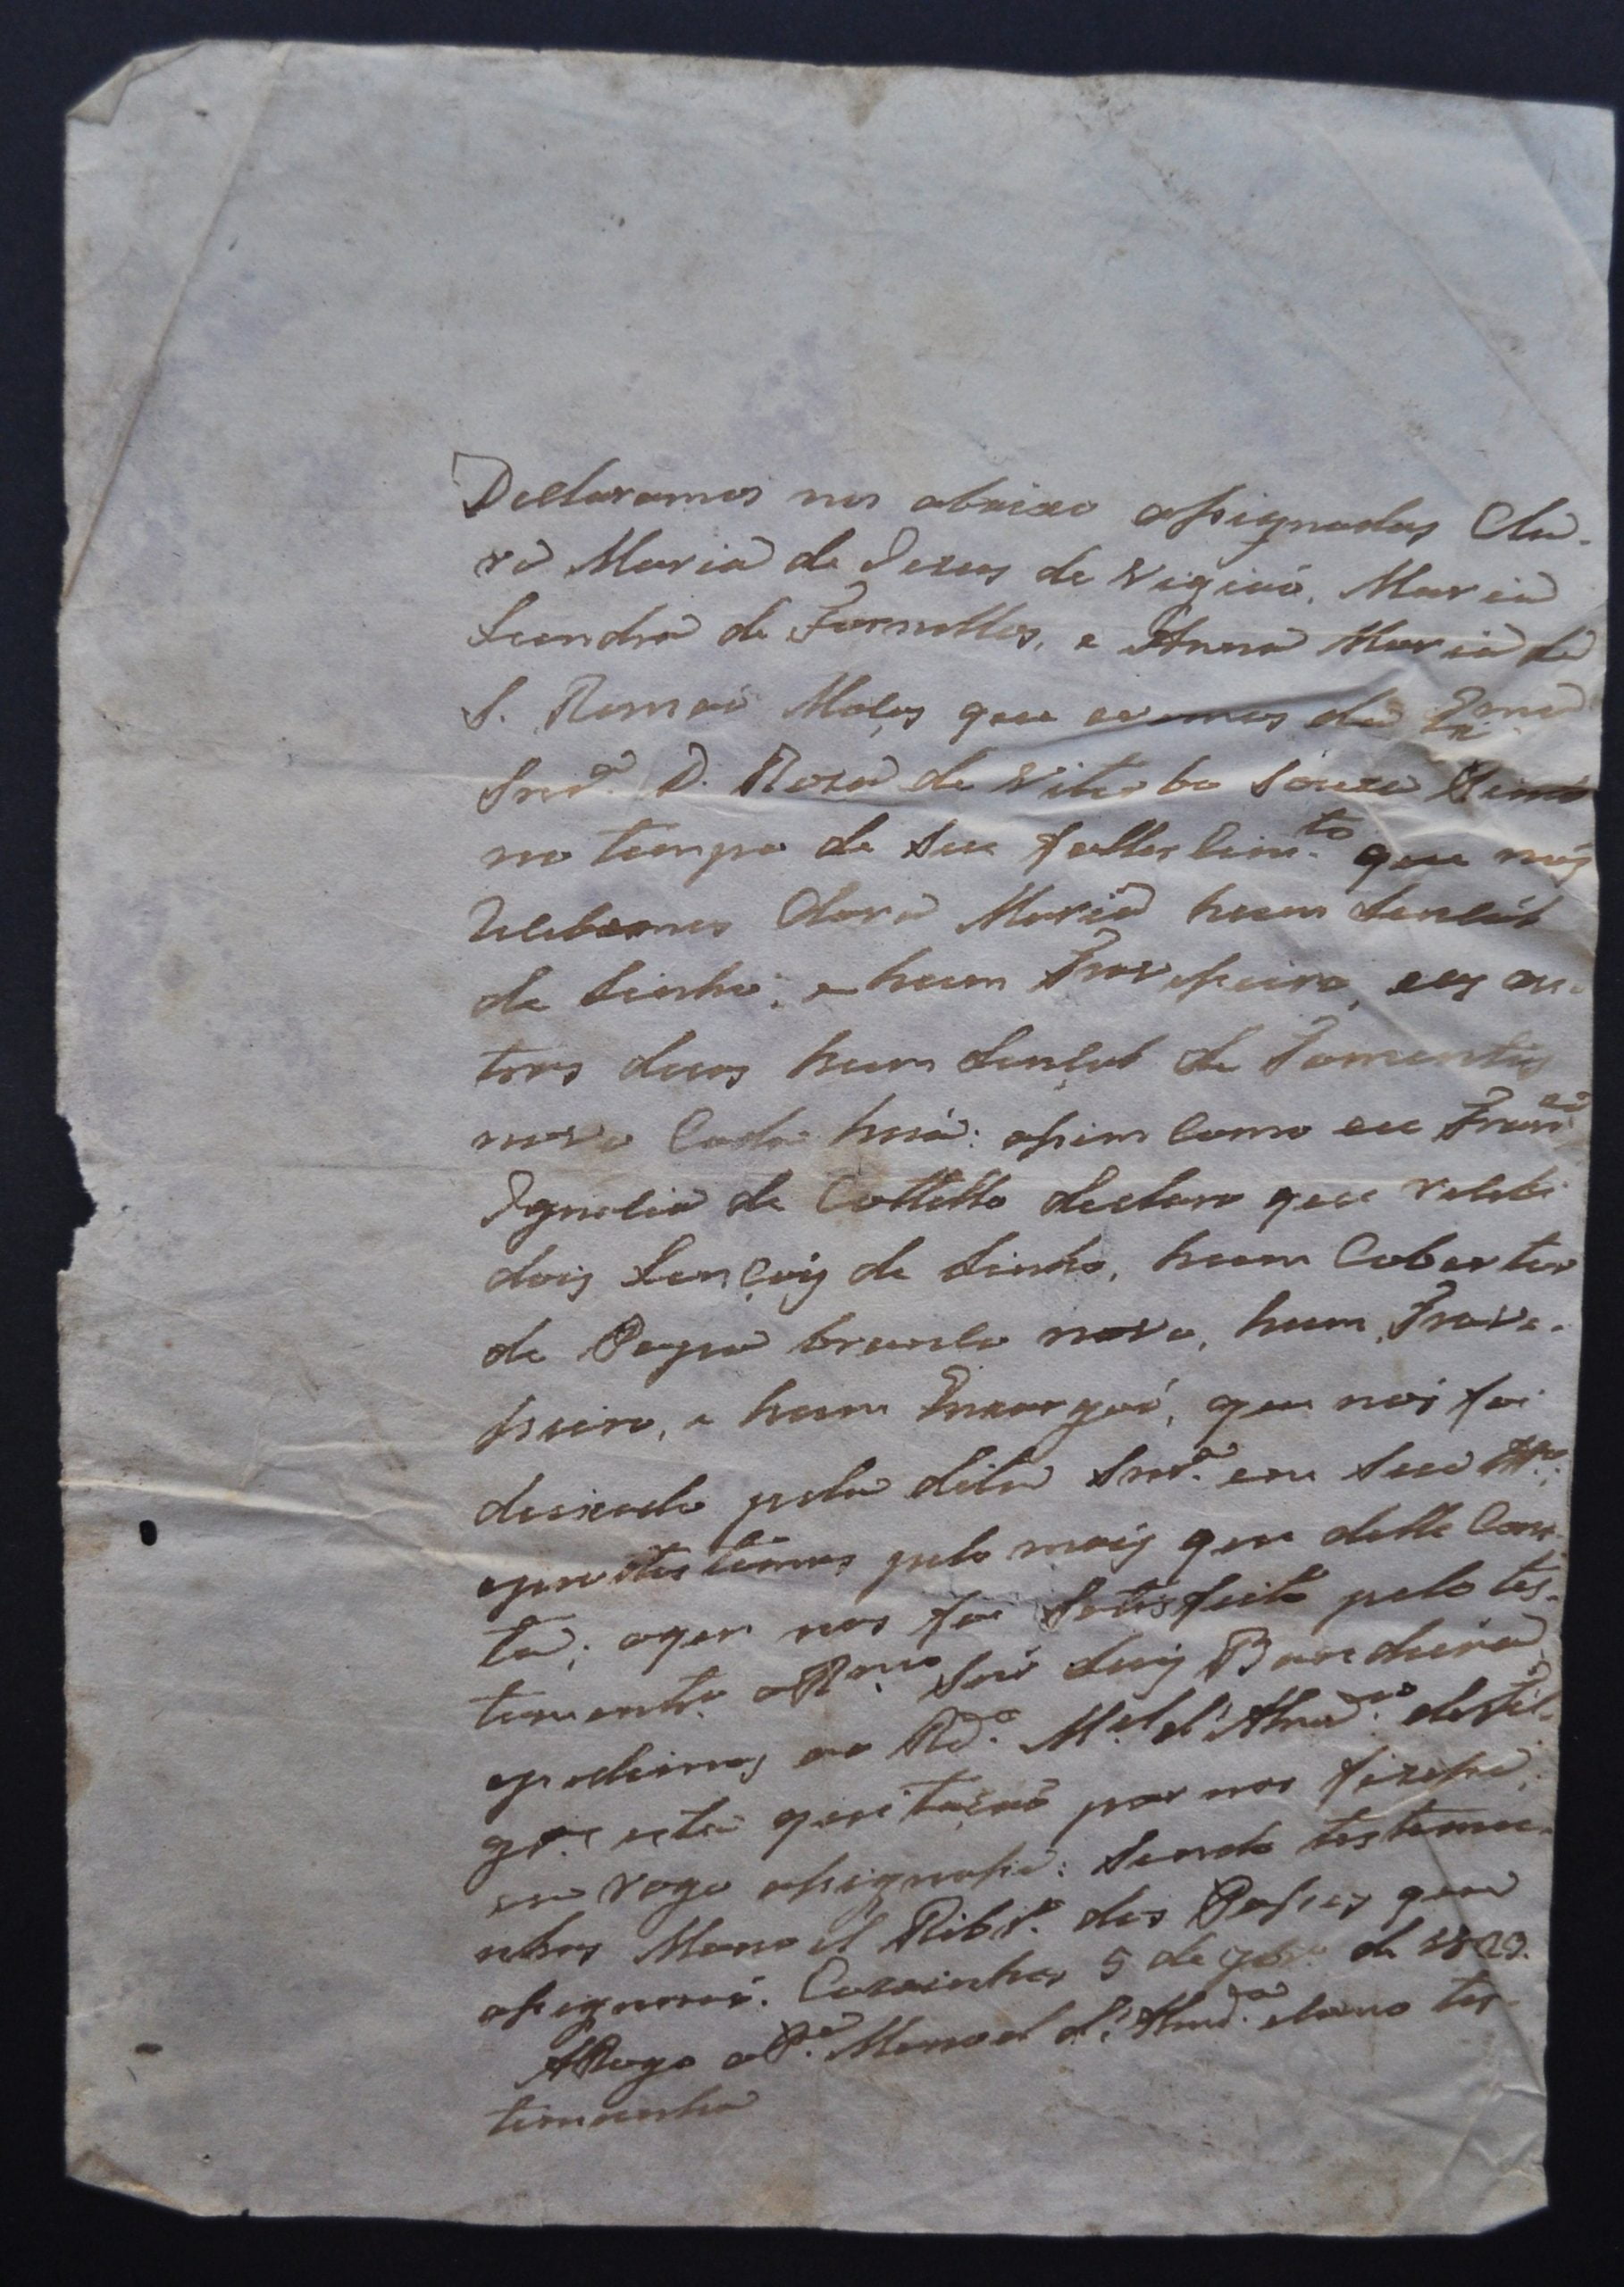 Declaramos nos abaixo assignadas Cla-
ra Maria de Jezus de Vigiaõ, Maria
Leandra de Fornellos, e Anna Maria de
S. Romaõ Moças que eramos da
Snr.ª D. Roza de Viterbo Souza
no tempo de seu fallescim.to que nós
recebemos Clara Maria hum lençol
de linho, e hum Travesseiro, e as ou-
tras duas hum lençol de Tomentos
novo cada huã: assim como eu
Ignacia de Cottello declaro que recebi
dois Lençois de linho, hum Cobertor
de Papa branco novo, hum Trave-
sseiro, e hum Enxergaõ, que nos foi
deixado pela dita Snr.ª em seu
mais que delle Cons-
ta; o que nos foi satisfeito pelo tes-
tament.º o R.mo Snr Luiz Bandeira
e pedimos ao Rd.º M.el d'Almd.ª
esta quitaçaõ por nos fizesse,
em rogo assignasse: sendo testemu-
nhas Manoel Ribr.º dos Passos que
assignou. Cozinhas 5 de 7br.º de 1829.
A Rogo o P.e Manoel d'Almd.ª e como tes-
temunha